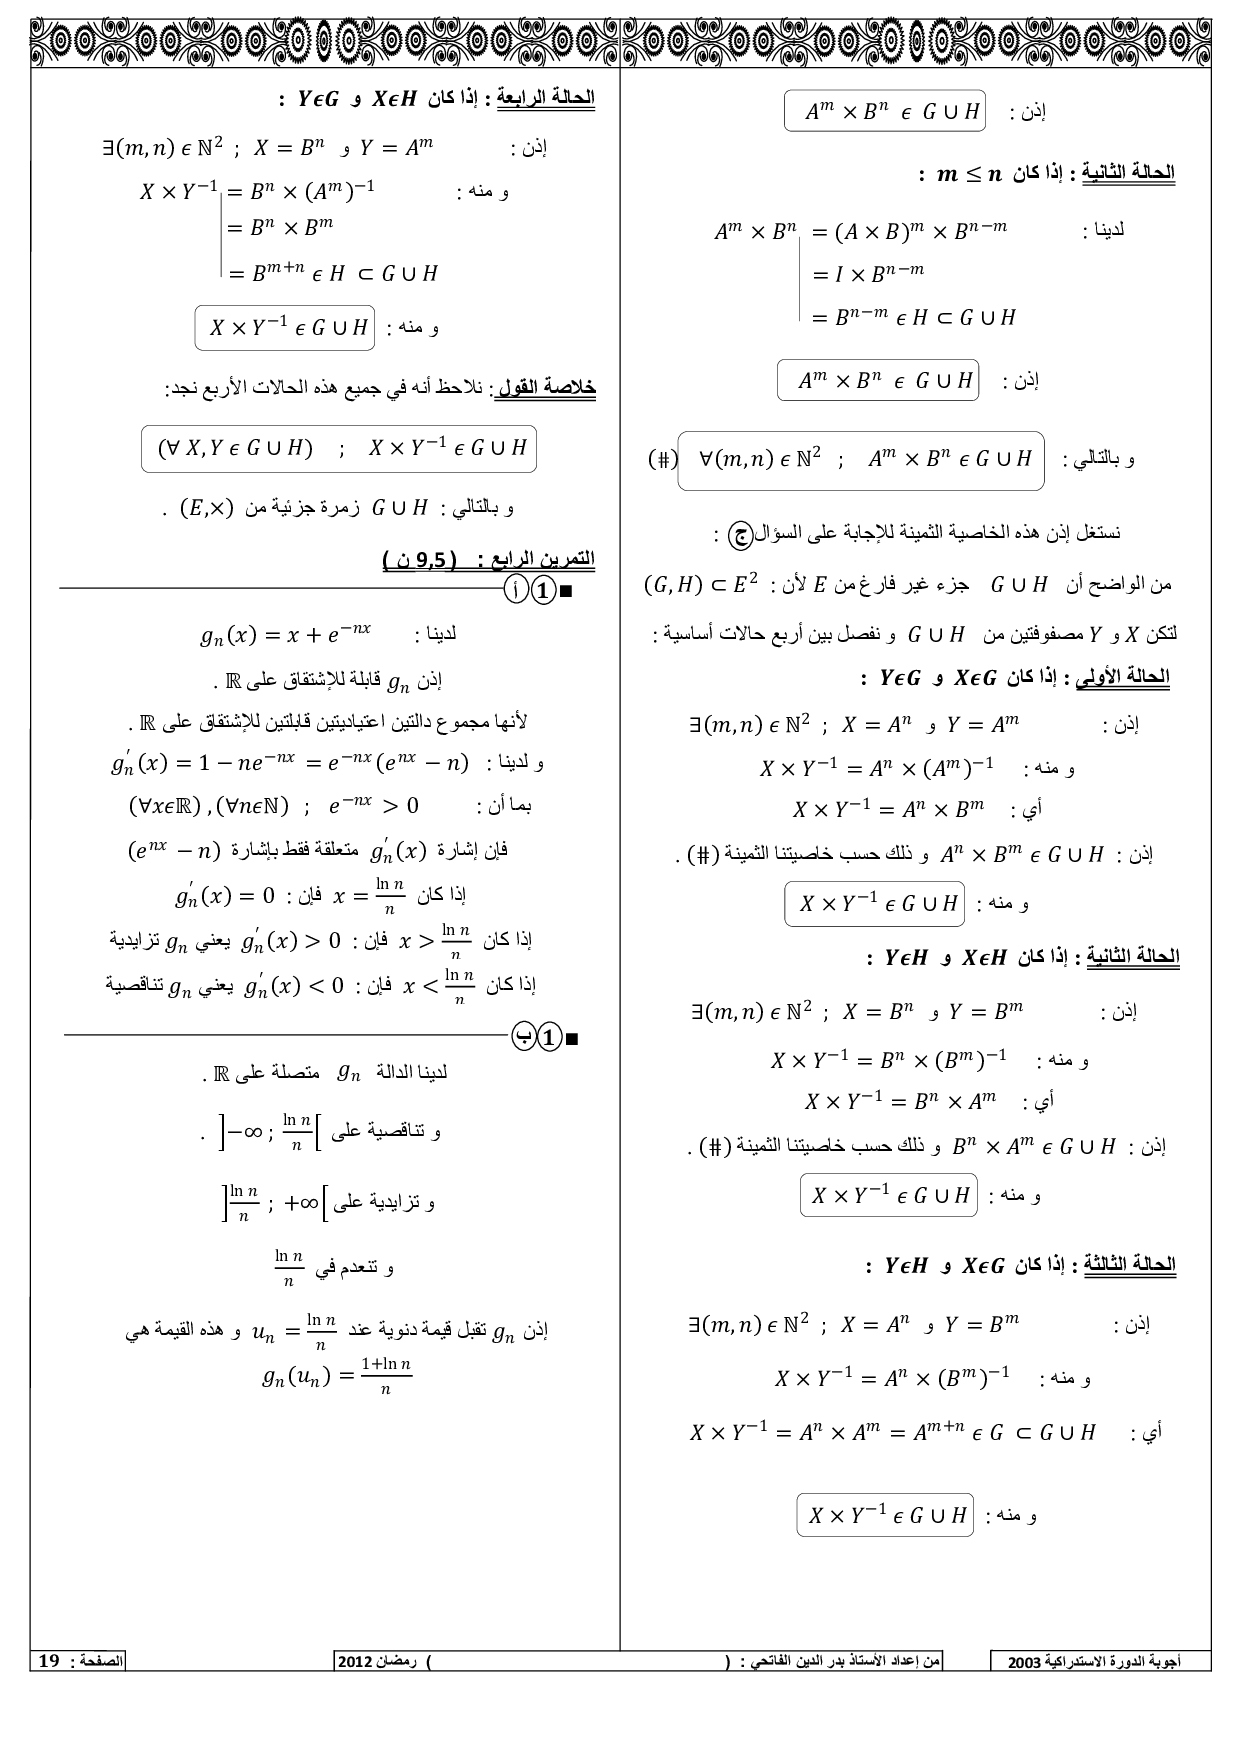 إذن : $A^m \times B^n \ \epsilon \ G \cup H$
الحالة الثانية : إذا كان $m \leq n$ :
لدينا : $A^m \times B^n = (A \times B)^m \times B^{n-m}$
$= I \times B^{n-m}$
$= B^{n-m} \ \epsilon \ H \subset G \cup H$
إذن : $A^m \times B^n \ \epsilon \ G \cup H$
و بالتالي : $\forall(m,n) \ \epsilon \ \mathbb{N}^2 \ ; \ A^m \times B^n \ \epsilon \ G \cup H$ (⋕)
نستغل إذن هذه الخاصية الثمينة للإجابة على السؤال ج :
من الواضح أن $G \cup H$ جزء غير فارغ من $E$ لأن : $(G,H) \subset E^2$
لتكن $X$ و $Y$ مصفوفتين من $G \cup H$ و نفصل بين أربع حالات أساسية :
الحالة الأولى : إذا كان $X \epsilon G$ و $Y \epsilon G$ :
إذن : $\exists(m,n) \ \epsilon \ \mathbb{N}^2 \ ; \ X = A^n$ و $Y = A^m$
و منه : $X \times Y^{-1} = A^n \times (A^m)^{-1}$
أي : $X \times Y^{-1} = A^n \times B^m$
إذن : $A^n \times B^m \ \epsilon \ G \cup H$ و ذلك حسب خاصيتنا الثمينة (⋕) .
و منه : $X \times Y^{-1} \ \epsilon \ G \cup H$
الحالة الثانية : إذا كان $X \epsilon H$ و $Y \epsilon H$ :
إذن : $\exists(m,n) \ \epsilon \ \mathbb{N}^2 \ ; \ X = B^n$ و $Y = B^m$
و منه : $X \times Y^{-1} = B^n \times (B^m)^{-1}$
أي : $X \times Y^{-1} = B^n \times A^m$
إذن : $B^n \times A^m \ \epsilon \ G \cup H$ و ذلك حسب خاصيتنا الثمينة (⋕) .
و منه : $X \times Y^{-1} \ \epsilon \ G \cup H$
الحالة الثالثة : إذا كان $X \epsilon G$ و $Y \epsilon H$ :
إذن : $\exists(m,n) \ \epsilon \ \mathbb{N}^2 \ ; \ X = A^n$ و $Y = B^m$
و منه : $X \times Y^{-1} = A^n \times (B^m)^{-1}$
أي : $X \times Y^{-1} = A^n \times A^m = A^{m+n} \ \epsilon \ G \subset G \cup H$
و منه : $X \times Y^{-1} \ \epsilon \ G \cup H$
الحالة الرابعة : إذا كان $X \epsilon H$ و $Y \epsilon G$ :
إذن : $\exists(m,n) \ \epsilon \ \mathbb{N}^2 \ ; \ X = B^n$ و $Y = A^m$
و منه : $X \times Y^{-1} = B^n \times (A^m)^{-1}$
$= B^n \times B^m$
$= B^{m+n} \ \epsilon \ H \subset G \cup H$
و منه : $X \times Y^{-1} \ \epsilon \ G \cup H$
خلاصة القول : نلاحظ أنه في جميع هذه الحالات الأربع نجد:
$(\forall \ X,Y \ \epsilon \ G \cup H) \ ; \ X \times Y^{-1} \ \epsilon \ G \cup H$
و بالتالي : $G \cup H$ زمرة جزئية من $(E,\times)$ .
التمرين الرابع : ( 9,5 ن )
■ 1 أ
لدينا : $g_n(x) = x + e^{-nx}$
إذن $g_n$ قابلة للإشتقاق على $\mathbb{R}$ .
لأنها مجموع دالتين اعتياديتين قابلتين للإشتقاق على $\mathbb{R}$ .
و لدينا : $g_n'(x) = 1 - ne^{-nx} = e^{-nx}(e^{nx} - n)$
بما أن : $(\forall x \epsilon \mathbb{R}) , (\forall n \epsilon \mathbb{N}) \ ; \ e^{-nx} > 0$
فإن إشارة $g_n'(x)$ متعلقة فقط بإشارة $(e^{nx} - n)$
إذا كان $x = \frac{\ln n}{n}$ فإن : $g_n'(x) = 0$
إذا كان $x > \frac{\ln n}{n}$ فإن : $g_n'(x) > 0$ يعني $g_n$ تزايدية
إذا كان $x < \frac{\ln n}{n}$ فإن : $g_n'(x) < 0$ يعني $g_n$ تناقصية
■ 1 ب
لدينا الدالة $g_n$ متصلة على $\mathbb{R}$ .
و تناقصية على $\left]-\infty ; \frac{\ln n}{n}\right[$ .
و تزايدية على $\left]\frac{\ln n}{n} ; +\infty\right[$
و تنعدم في $\frac{\ln n}{n}$
إذن $g_n$ تقبل قيمة دنوية عند $u_n = \frac{\ln n}{n}$ و هذه القيمة هي
$g_n(u_n) = \frac{1+\ln n}{n}$
أجوبة الدورة الاستدراكية 2003
من إعداد الأستاذ بدر الدين الفاتحي : ( ) رمضان 2012
الصفحة : 19